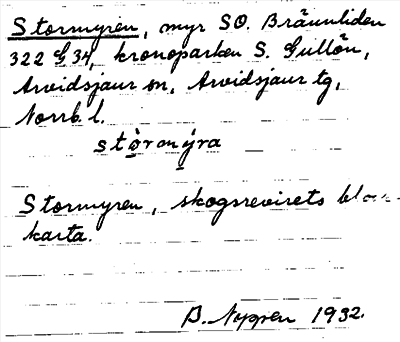 Stormyren, myr SO. Brännliden
322 G 34, kronoparken S. Gullön,
Arvidsjaur sn, Arvidsjaur tg,
Norrb. l.
stòrmýra
Stormyren, skogsrevirets
karta.
B. Nygren 1932.